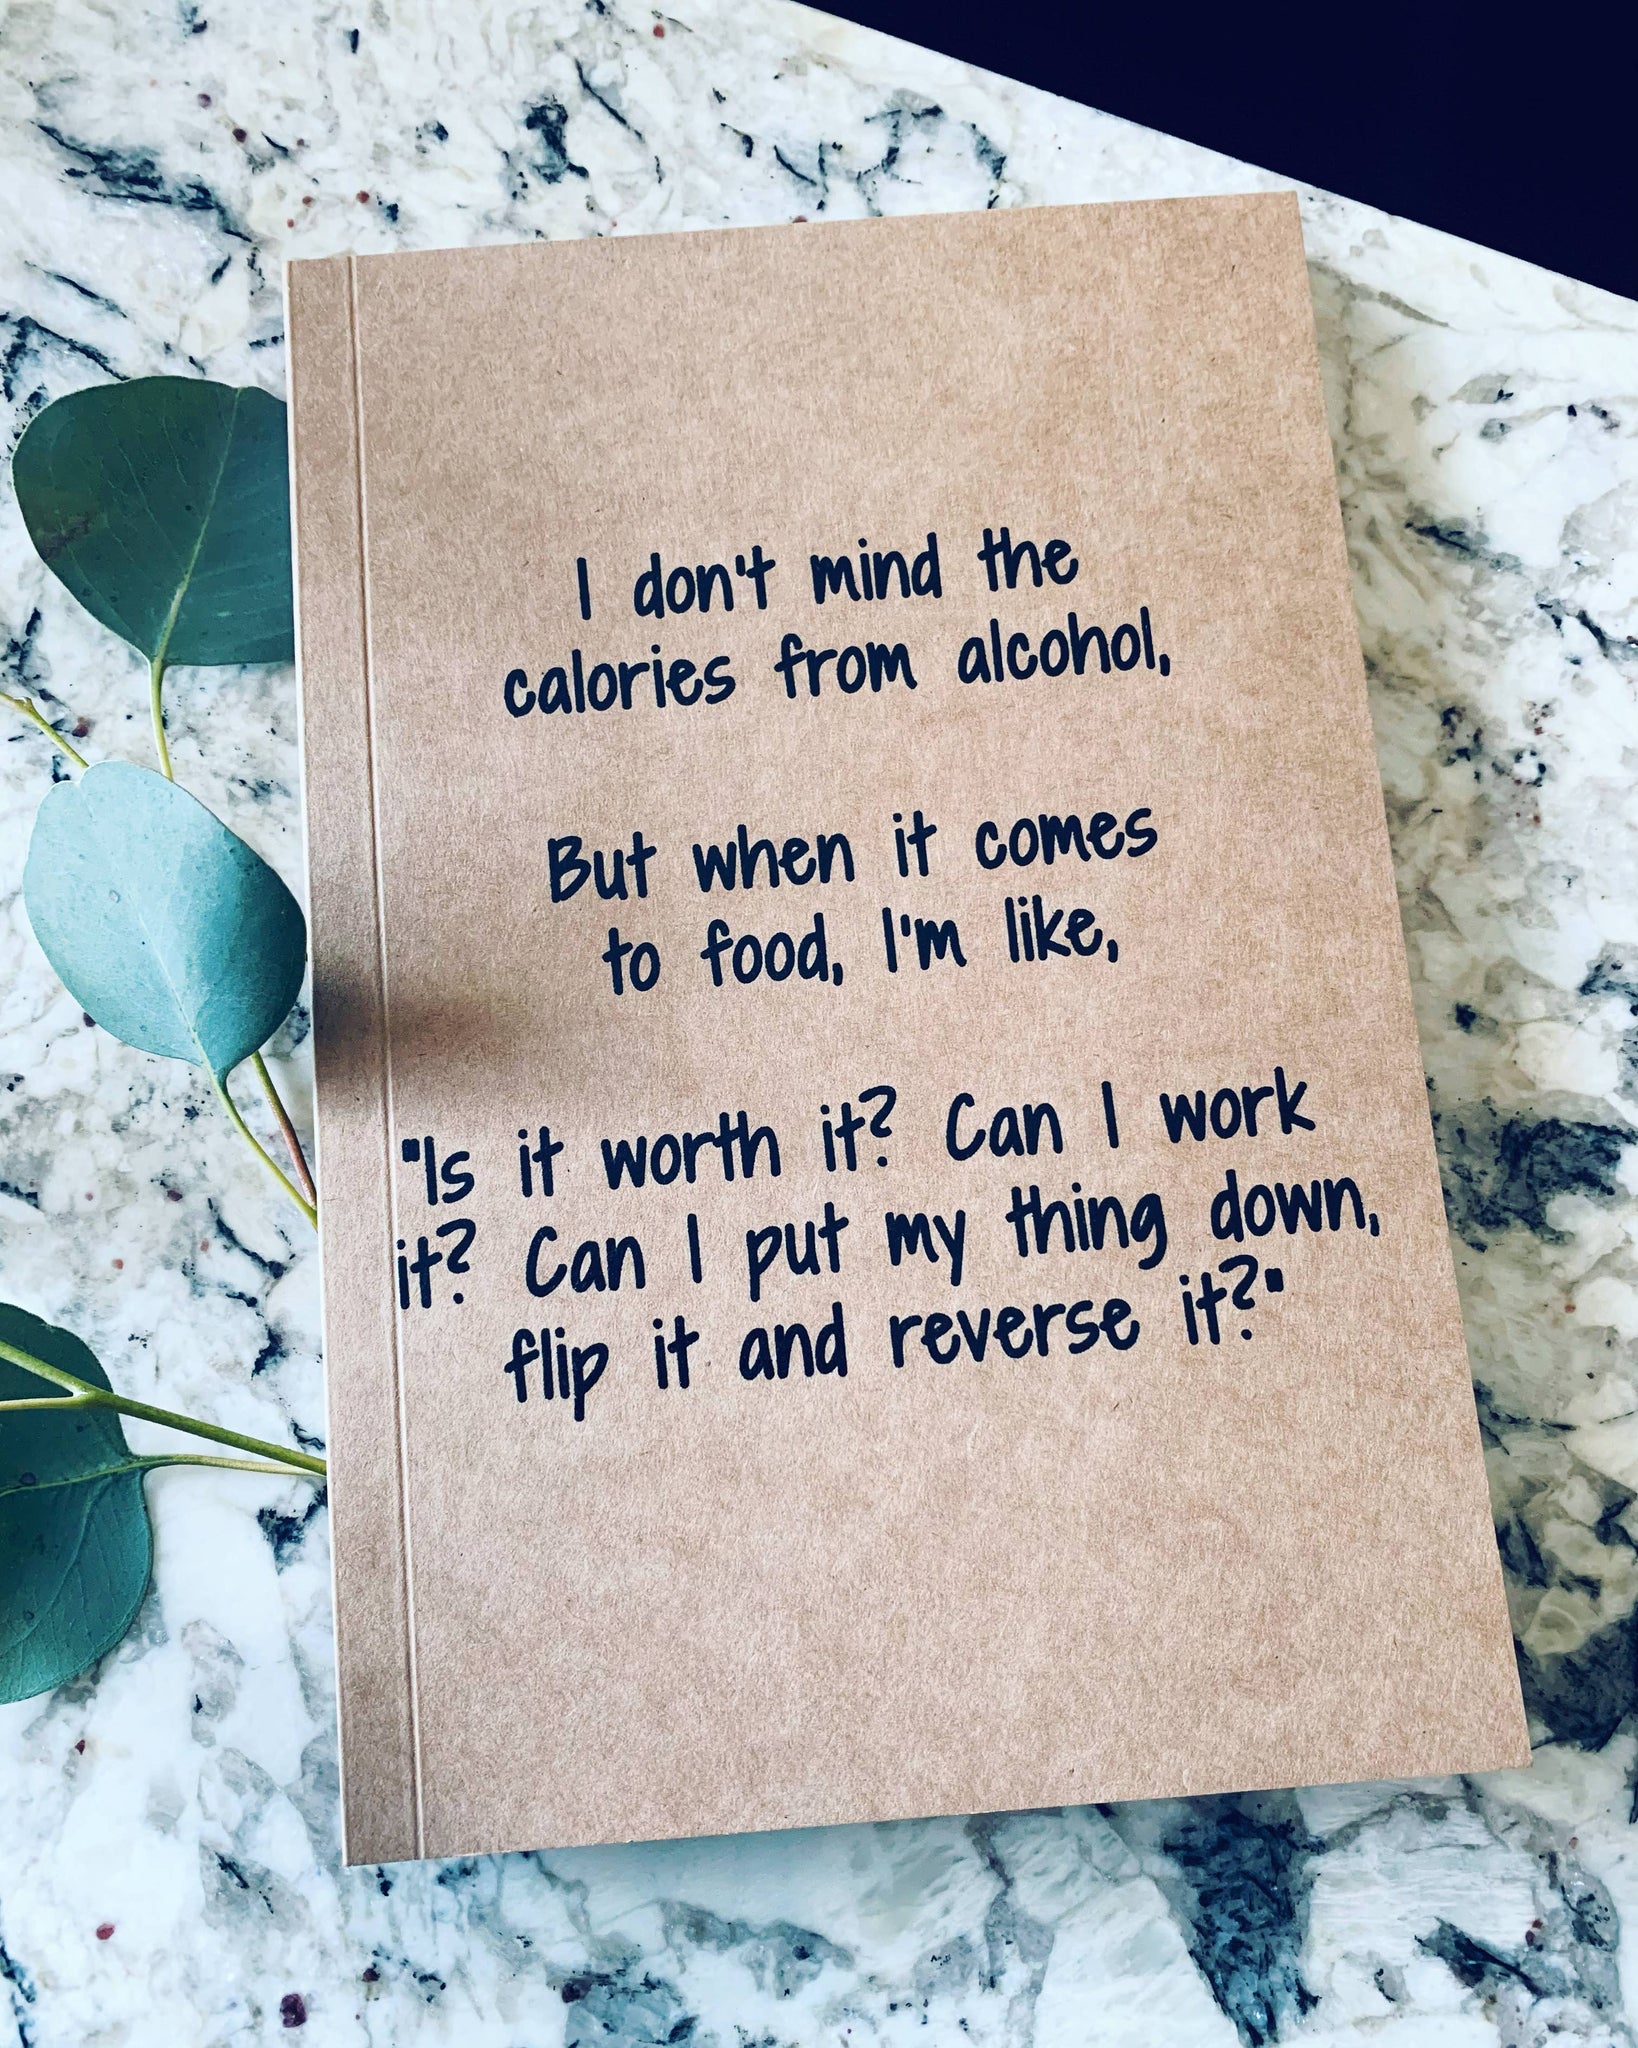 I don't mind the
calories from alcohol,
But when it comes
to food, I'm like,
"Is it worth it? Can I work
it? Can I put my thing down,
flip it and reverse it?"